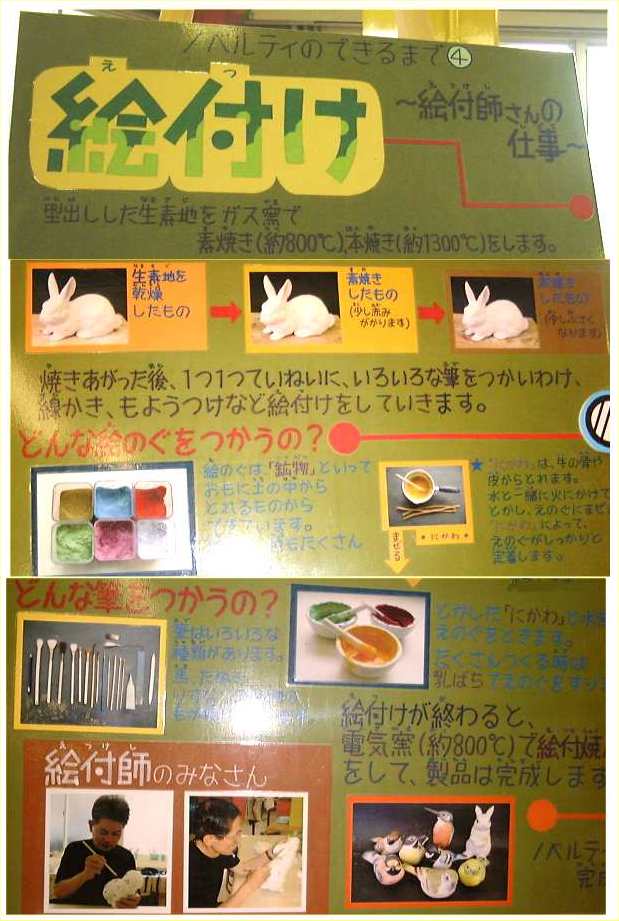 ノベルティのできるまで④
えつ
絵付け
～絵付師さんの
仕事～
型出しした生素地をガス窯で
素焼き(約800℃)、本焼き(約1300℃)をします。
生素地を
乾燥
したもの
素焼き
したもの
(少し赤み
がかります)
したもの
(少し小さく
なります)
焼きあがった後、1つ1つていねいに、いろいろな筆をつかいわけ、
線かき、もようつけなど絵付けをしていきます。
どんな絵のぐをつかうの?
絵のぐは、「鉱物」といって
おもに土の中から
とれるものから
できています。
もたくさん
まぜる
★にかわ★
★「にかわ」は、牛の骨や
皮からとれます。
水と一緒に火にかけて
とかし、えのぐにまぜ
「にかわ」によって、
えのぐがしっかりと
定着します。
どんな筆をつかうの?
筆はいろいろな
種類があります。
馬、たぬき、
とかした「にかわ」と水
えのぐをときます。
たくさんつくる時は
乳ばちでえのぐをすり
絵付けが終わると、
電気窯(約800℃)で絵付焼
をして、製品は完成します
えつけし
絵付師のみなさん
ノベルテ
完成